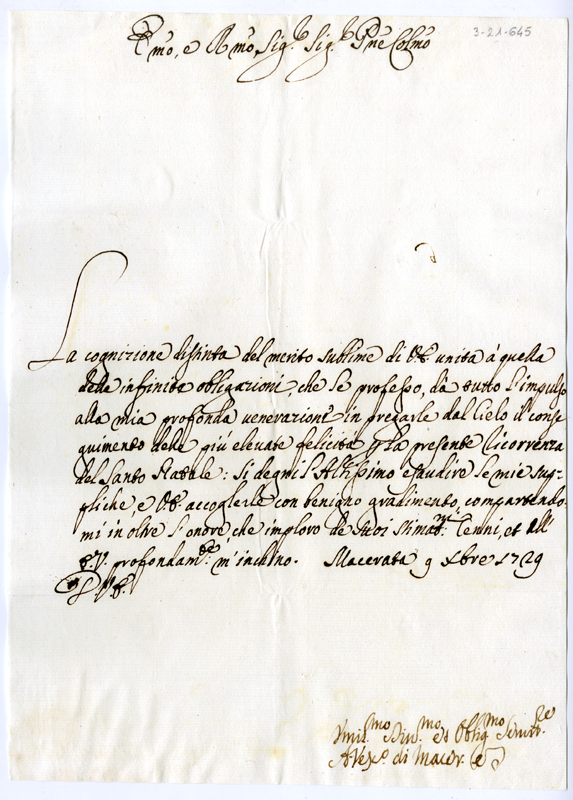 3-21-645
Em̃o, e Rm̃o Sig.r Sig.r Pñe Colm̃o
La cognizione distinta del merito sublime di V.E. unita à quella
delle infinite obligazioni, che le professo, dà tutto l'impulso
alla mia profonda venerazione in pregarle dal Cielo il conse
guimento delle più elevate felicità p la presente ricorrenza
del Santo Natale: Si degni l'Altissimo esaudire le mie sup-
pliche, e V.E. accoglierle con benigno gradimento, compartendo-
mi in oltre l'onore che imploro de suoi stimat.mi Cenni, et all'
E.V. profondam.te m'inchino. Macerata 9 Xbre 1729
D. V. E.
Umil.mo Div.mo et Oblig.mo Servit.re
Aless.o di Macer.